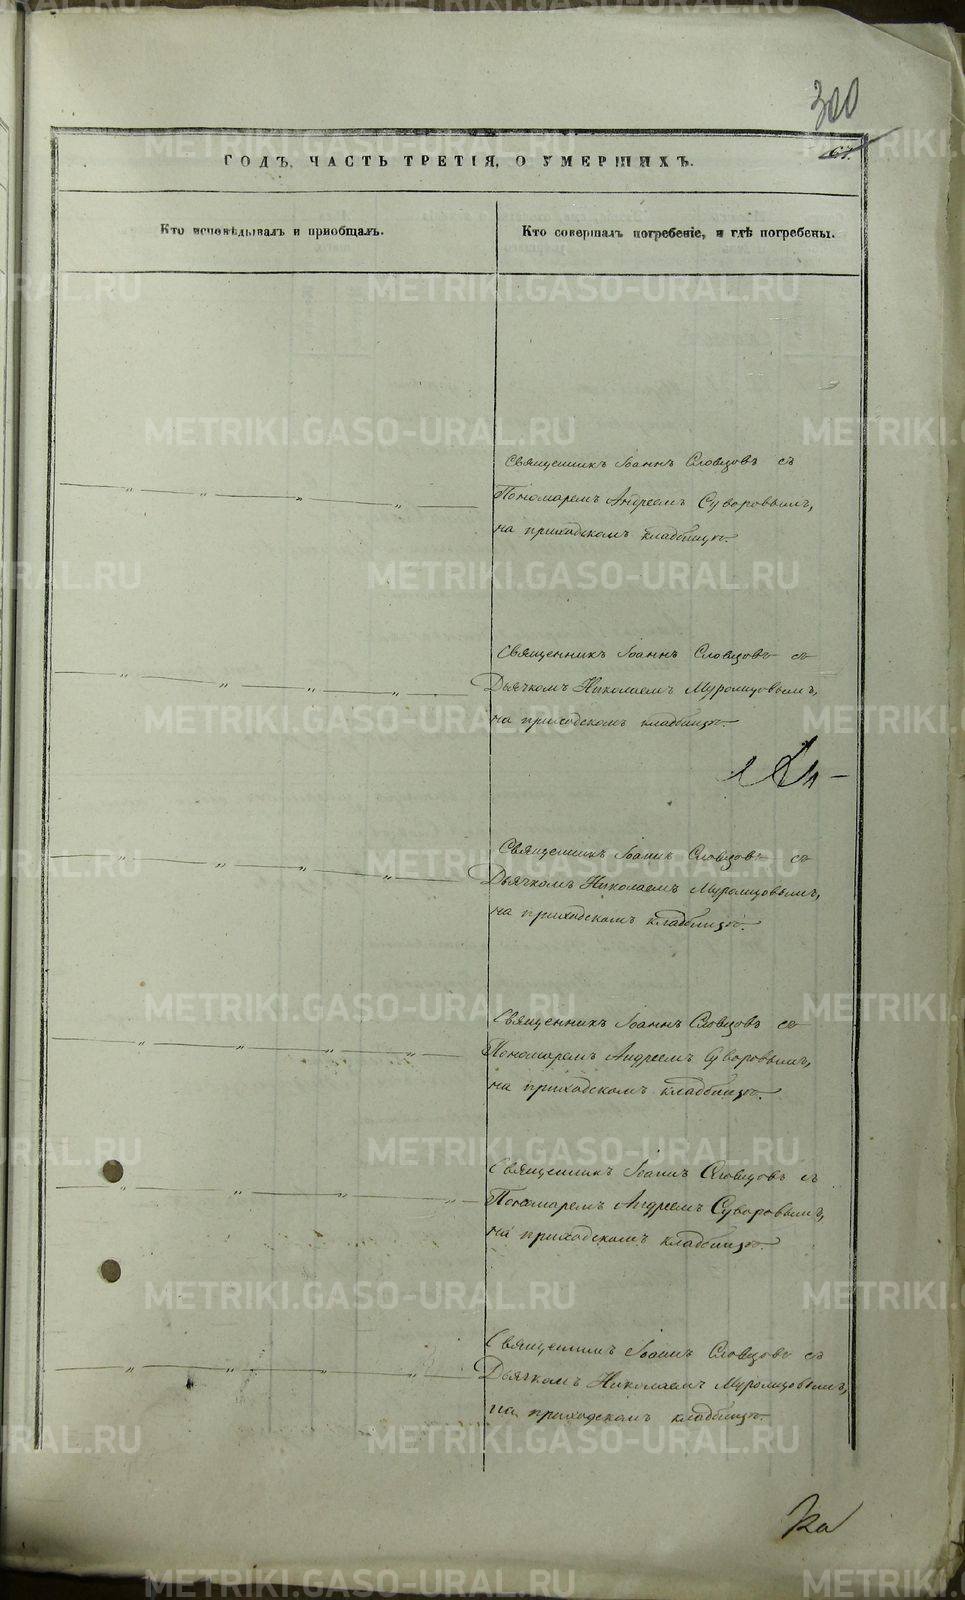 300
67.
ГОДЪ, ЧАСТЬ ТРЕТІЯ, О УМЕРШИХЪ.
Кто исповѣдывалъ и приобщалъ.
Кто совершалъ погребеніе, и гдѣ погребены.
Священникъ Іоаннъ Словцовъ съ
Пономаремъ Андреемъ Суворовымъ,
на приходскомъ кладбищѣ.
Священникъ Іоаннъ Словцовъ съ
Дьячкомъ Николаемъ Муромцовымъ,
на приходскомъ кладбищѣ.
Священникъ Іоаннъ Словцовъ съ
Дьячкомъ Николаемъ Муромцовымъ,
на приходскомъ кладбищѣ.
Священникъ Іоаннъ Словцовъ съ
Пономаремъ Андреемъ Суворовымъ,
на приходскомъ кладбищѣ.
Священникъ Іоаннъ Словцовъ съ
Пономаремъ Андреемъ Суворовымъ,
на приходскомъ кладбищѣ.
Священникъ Іоаннъ Словцовъ съ
Дьячкомъ Николаемъ Муромцовымъ,
на приходскомъ кладбищѣ.
METRIKI.GASO-URAL.RU